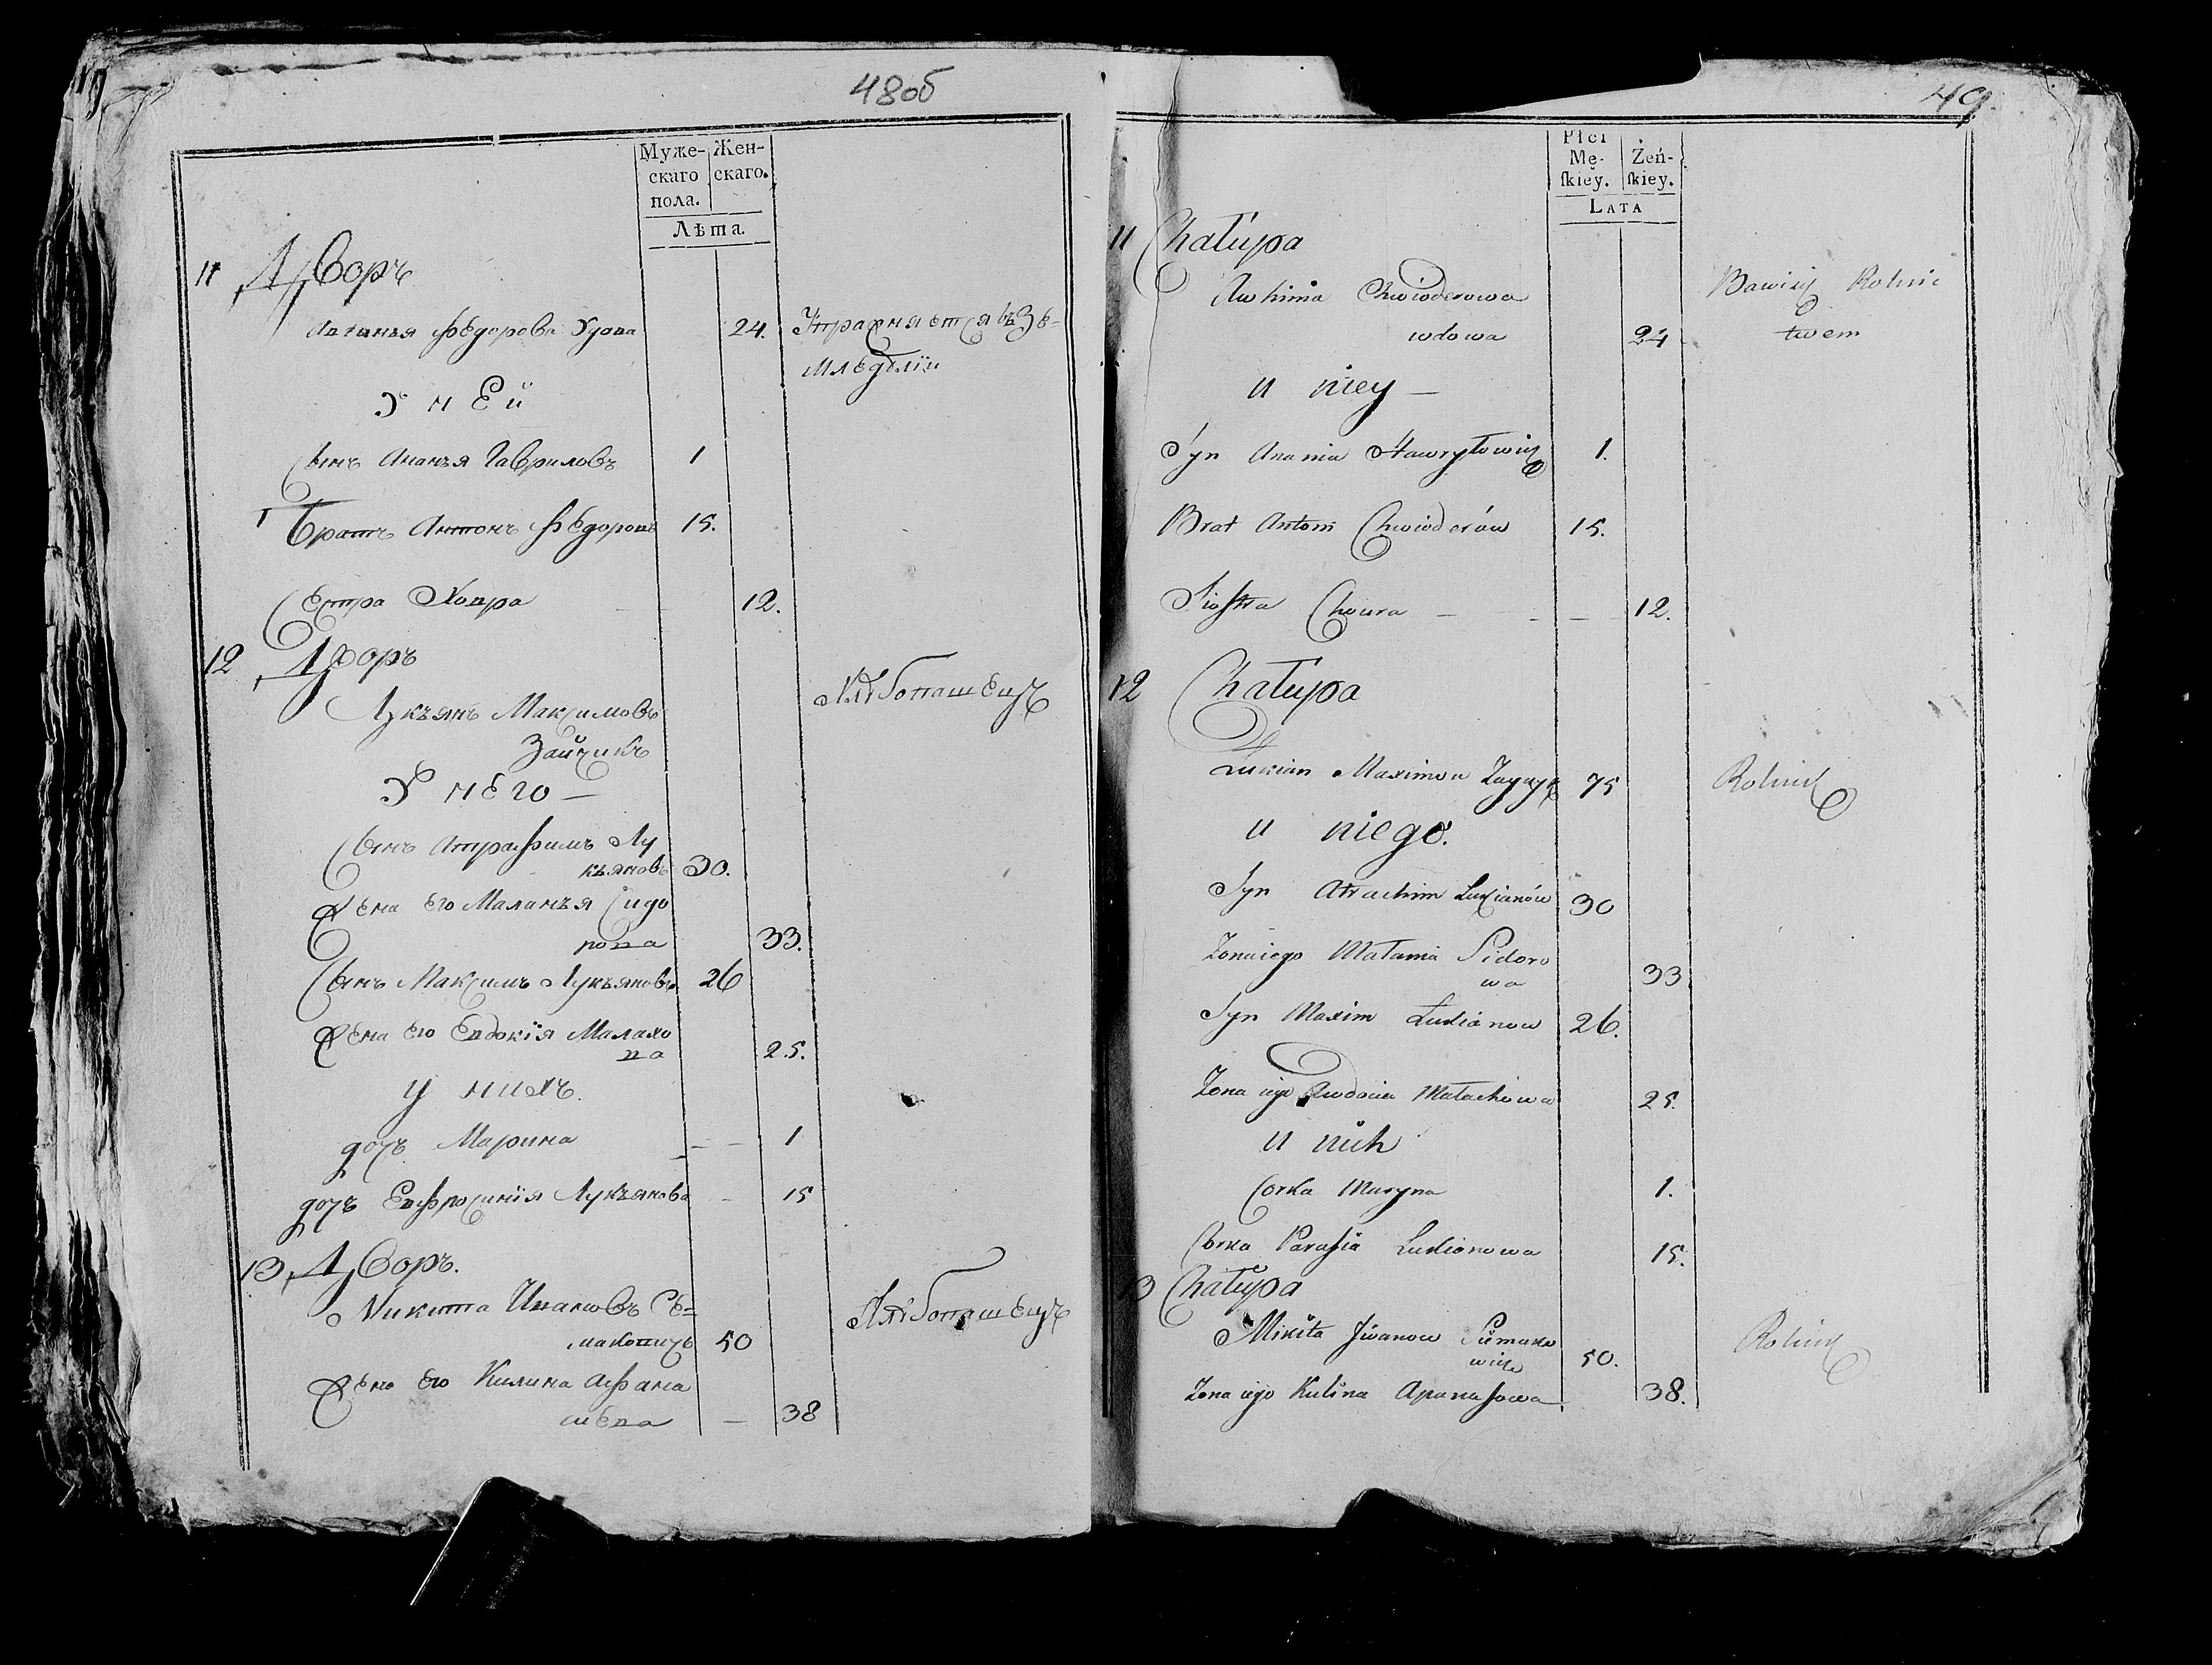 48об
Муже- Жен-
скаго скаго.
пола.
Лѣта.
11 Дворъ
Федорова Удова 24. Упражняется въ Зе-
мледѣлiи
У ней
Сынъ Ананья Гавриловъ 1
Братъ Антонъ Федоровъ 15.
Сестра Ховра 12.
12 Дворъ
Лукъянъ Максимовъ
Зайчикъ
У него —
Сынъ Атрафимъ Лу
къяновъ 30.
Жена его Маланъя Сидо
рова 33.
Сынъ Максимъ Лукъяновъ 26
Жена его Евдокiя Малахо
ва 25.
у нихъ.
дочъ Марина 1
дочъ Евфросинiя Лукъянова 15
13 Дворъ.
Никита Ивановъ Се=
маковичъ 50
Жена его Килина Афана
сиева — 38
49.
Płci
Mę- Żeń-
ſkiey. ſkiey.
LATA
11 Chałupa
Chwiodorowa Bawiący Rolnic
wdowa 24 twem
u niey —
Syn Anania Hawryłowicz 1.
Brat Antoni Chwiodorów 15.
Siostra Choura — — — 12.
12 Chałupa
Łukian Maximow Zayczyk 75 Rolnik
u niego.
Syn Atrachim Lukianów 30
Zona iego Małania Sidoro
wa 33
Syn Maxim Łukianow 26.
Zona iego Awdocia Małachowa 25.
u nich
Corka Maryna 1.
Corka Parasia Lukianowa 15.
13 Chałupa
Mikita Jwanow Siemako
wicz 50. Rolnik
Zona iego Kulina Apanasowa 38.